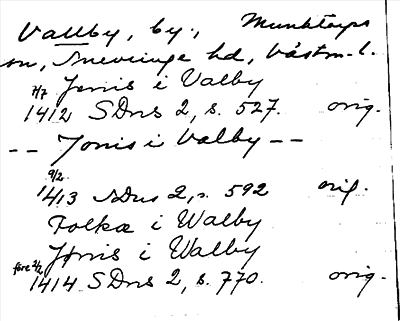 Vallby, by, Munktorps
sn, Snevringe hd, Västm. l.
Jønis i Valby
7/7 1412 SDns 2, s. 527. orig.
-- Jonis i Valby --
9/2 1413 SDns 2, s. 592 orig.
Folka i Walby
Jønis i Walby
före 2/2 1414 SDns 2, s. 770. orig.